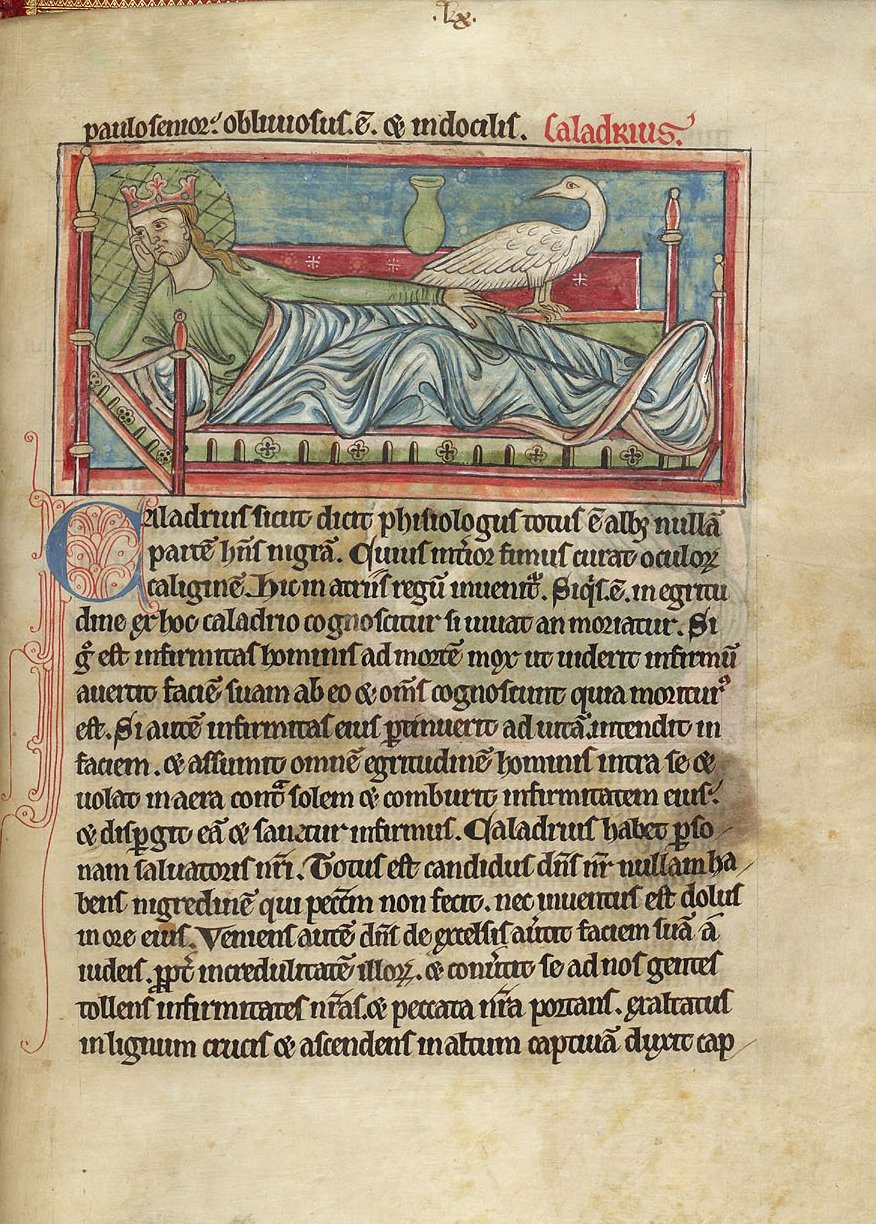 .lx.
paulo senior. obliuiosus .ē. & indocilis. Caladrius.
Caladrius sicut dicit phisiologus totus ē albꝫ nullā
partē hn̄s nigrā. Cuius int̄ior fimus curat oculoꝝ
caliginē. Hic in atriis regū inuenit᷑. Siq̇s .ē. in egritu
dine ex hoc caladrio cognoscitur si uiuat an moriatur. Si
g̊ est infirmitas hominis ad mortē mox ut uiderit infirmū
auertit faciē suam ab eo & om̄s cognoscunt quia moriturꝰ
est. Si autē infirmitas eius ꝑtinuerit ad uitā. intendit in
faciem. & assumit omnē egritudinē hominis intra se &
uolat in aera cont̄ solem & comburit infirmitatem eius.
& disꝑgit eā & sanatur infirmus. Caladrius habet ꝑso
nam saluatoris nr̄i. Totus est candidus dn̄s nr̄ nullam ha
bens nigredinē qui pecc̄m non fecit. nec inuentus est dolus
in ore eius. Veniens autē dn̄s de excelsis aūtit faciem suā a
iudeis. ꝓpt̄ incredulitatē illoꝝ. & conūtit se ad nos gentes
tollens infirmitates nr̄as. & peccata nr̄a portans. exaltatus
in lignum crucis & ascendens in altum captiuā duxit cap